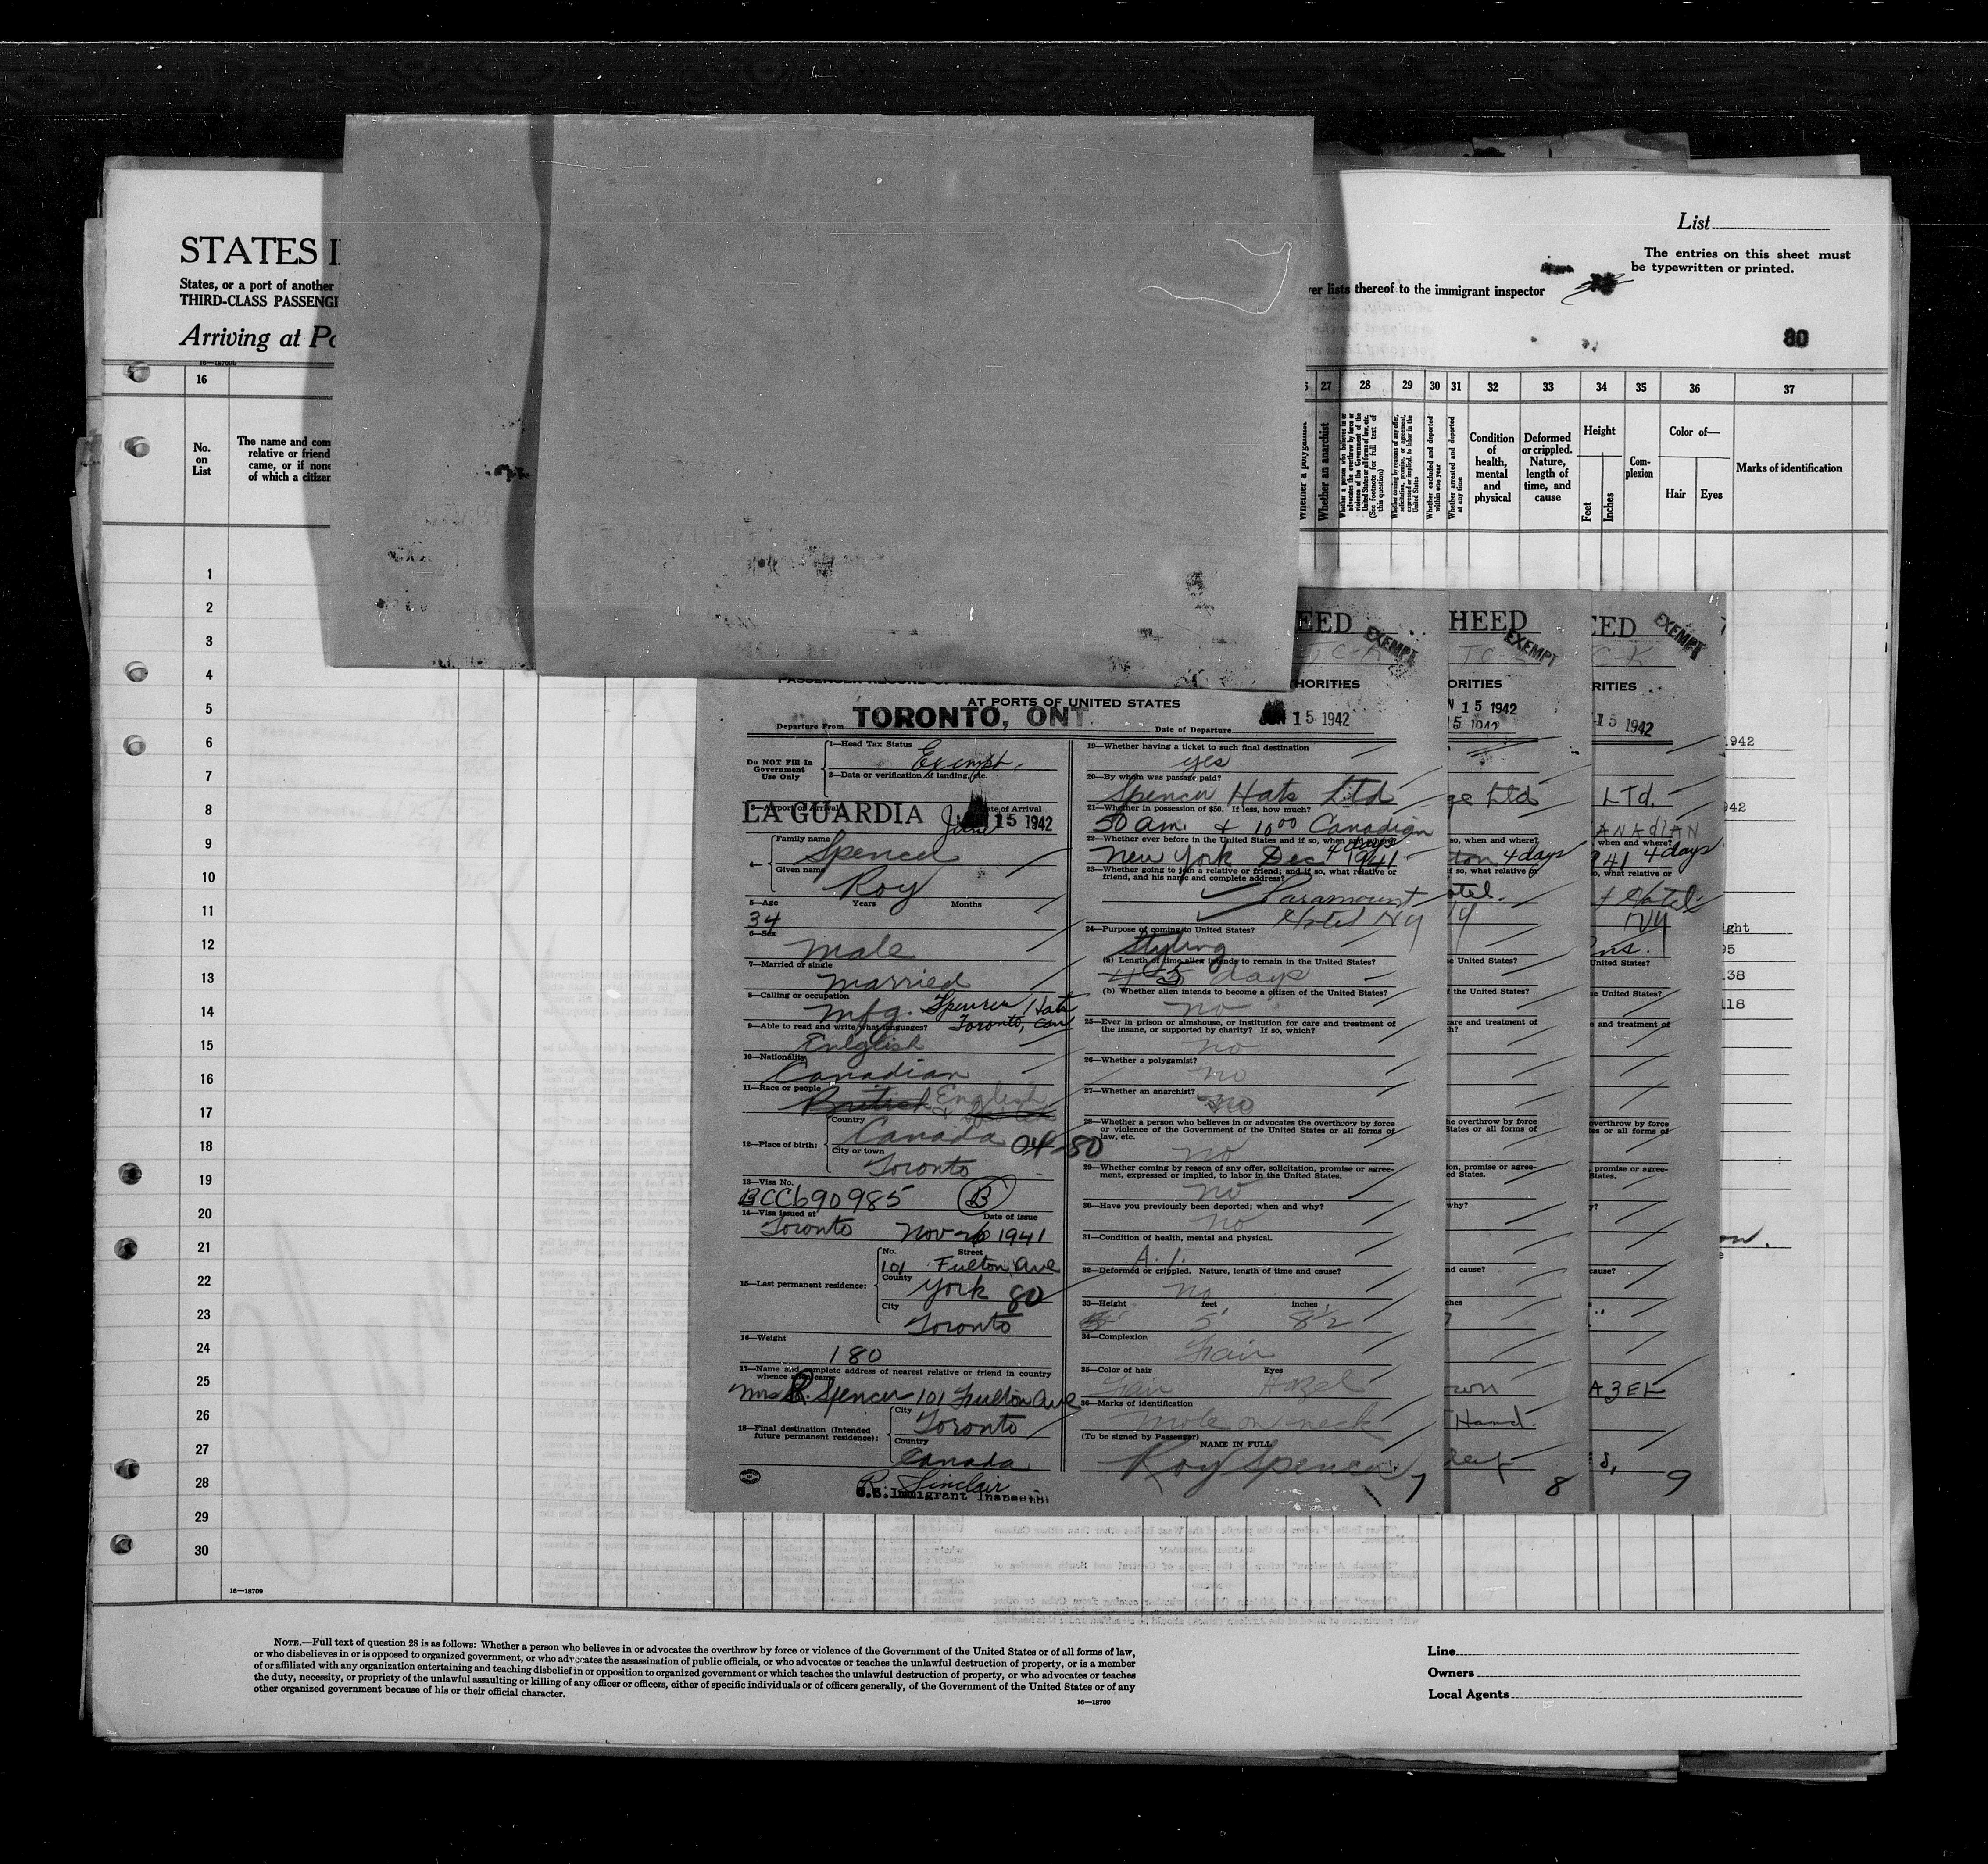 STATES I
States, or a port of another
THIRD-CLASS PASSENG
Arriving at Po
List
The entries on this sheet must
be typewritten or printed.
ver lists thereof to the immigrant inspector
80
16 27 28 29 30 31 32 33 34 35 36 37
No.
on
List
The name and com
relative or friend
came, or if none
of which a citizen
Whether a polygamist
Whether an anarchist
Whether a person who believes in or
advocates the overthrow by force or
violence of the Government of the
United States or all forms of law, etc.
(See footnote for full text of
this question)
Whether coming by reason of any offer,
solicitation, promise, or agreement,
expressed or implied, to labor in the
United States
Whether excluded and deported
within one year
Whether arrested and deported
at any time
Condition
of
health,
mental
and
physical
Deformed
or crippled.
Nature,
length of
time, and
cause
Height
Feet
Inches
Com-
plexion
Color of—
Hair
Eyes
Marks of identification
1
2
3
4
5
6
7
8
9
10
11
12
13
14
15
16
17
18
19
20
21
22
23
24
25
26
27
28
29
30
16—18709
AT PORTS OF UNITED STATES
Departure From TORONTO, ONT.
Date of Departure JUN 15 1942
Do NOT Fill In
Government
Use Only
1—Head Tax Status
Exempt.
2—Data or verification of landing, etc.
3—Airport of Arrival
Date of Arrival
LA GUARDIA June 15 1942
4—
Family name
Spencer
Given name
Roy
5—Age Years Months
34
6—Sex
Male
7—Married or single
Married
8—Calling or occupation
Mfg. Spencer Hats
Toronto, Can
9—Able to read and write, what languages?
English
10—Nationality
Canadian
11—Race or people
British English
12—Place of birth:
Country
Canada 04-80
City or town
Toronto
13—Visa No.
BCC690985 B
14—Visa issued at Date of issue
Toronto Nov 26 1941
15—Last permanent residence:
No. Street
101 Fulton Ave
County
York 80
City
Toronto
16—Weight
180
17—Name and complete address of nearest relative or friend in country
whence alien came
Mrs R. Spencer 101 Fulton Ave
18—Final destination (Intended
future permanent residence):
City
Toronto
Country
Canada
R. Sinclair
U.S. Immigrant Inspector
19—Whether having a ticket to such final destination
yes
20—By whom was passage paid?
Spencer Hats Ltd
21—Whether in possession of $50. If less, how much?
50 am. + 10 00 Canadian
22—Whether ever before in the United States and if so, when and where?
New York Dec 1941 4 days
23—Whether going to join a relative or friend; and if so, what relative or
friend, and his name and complete address?
Paramount
Hotel NY
24—Purpose of coming to United States?
Styling
(a) Length of time alien intends to remain in the United States?
5 days
(b) Whether alien intends to become a citizen of the United States?
no
25—Ever in prison or almshouse, or institution for care and treatment of
the insane, or supported by charity? If so, which?
no
26—Whether a polygamist?
no
27—Whether an anarchist?
no
28—Whether a person who believes in or advocates the overthrow by force
or violence of the Government of the United States or all forms of
law, etc.
no
29—Whether coming by reason of any offer, solicitation, promise or agree-
ment, expressed or implied, to labor in the United States.
no
30—Have you previously been deported; when and why?
no
31—Condition of health, mental and physical.
A.1.
32—Deformed or crippled. Nature, length of time and cause?
No
33—Height feet inches
5' 8 1/2
34—Complexion
Fair
35—Color of hair Eyes
Fair Hazel
36—Marks of identification
Mole on neck
(To be signed by Passenger)
NAME IN FULL
Roy Spencer
7
EED
EXEMPT
THORITIES
HEED
EXEMPT
ORITIES
N 15 1942
15 1942
ge Ltd
so, when and where?
ton 4 days
if so, what relative or
otel.
e United States?
f the United States?
care and treatment of
he overthrow by force
States or all forms of
ion, promise or agree-
ed States.
why?
nd cause?
ches
own
Hand.
8
EED
EXEMPT
RITIES
15 1942
LTd.
CANADIAN
when and where?
41 4 days
o, what relative or
t Hotel
NY
United States?
e United States?
e and treatment of
overthrow by force
es or all forms of
promise or agree-
States.
cause?
AZEL
9
1942
942
ight
95
138
118
NOTE.—Full text of question 28 is as follows: Whether a person who believes in or advocates the overthrow by force or violence of the Government of the United States or of all forms of law,
or who disbelieves in or is opposed to organized government, or who advocates the assassination of public officials, or who advocates or teaches the unlawful destruction of property, or is a member
of or affiliated with any organization entertaining and teaching disbelief in or opposition to organized government or which teaches the unlawful destruction of property, or who advocates or teaches
the duty, necessity, or propriety of the unlawful assaulting or killing of any officer or officers, either of specific individuals or of officers generally, of the Government of the United States or of any
other organized government because of his or their official character.
16—18709
Line
Owners
Local Agents